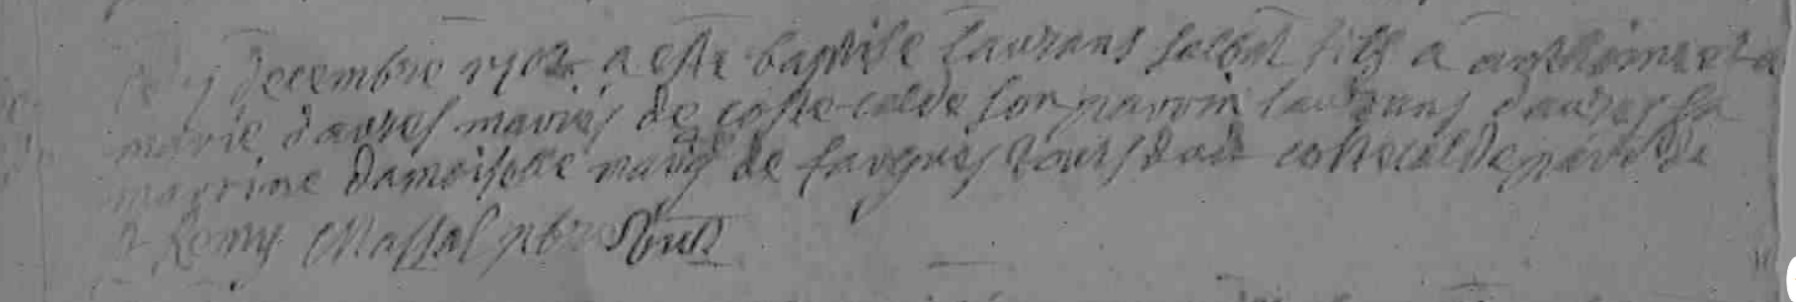 decembre 1702 a este baptise laurans fils a anthoine et a
marie daures mariés de coste-calde son parrin laurans daures sa
marrine damoiselle marg de fargues tous dud costecalde par de
st Remy Massal ptre